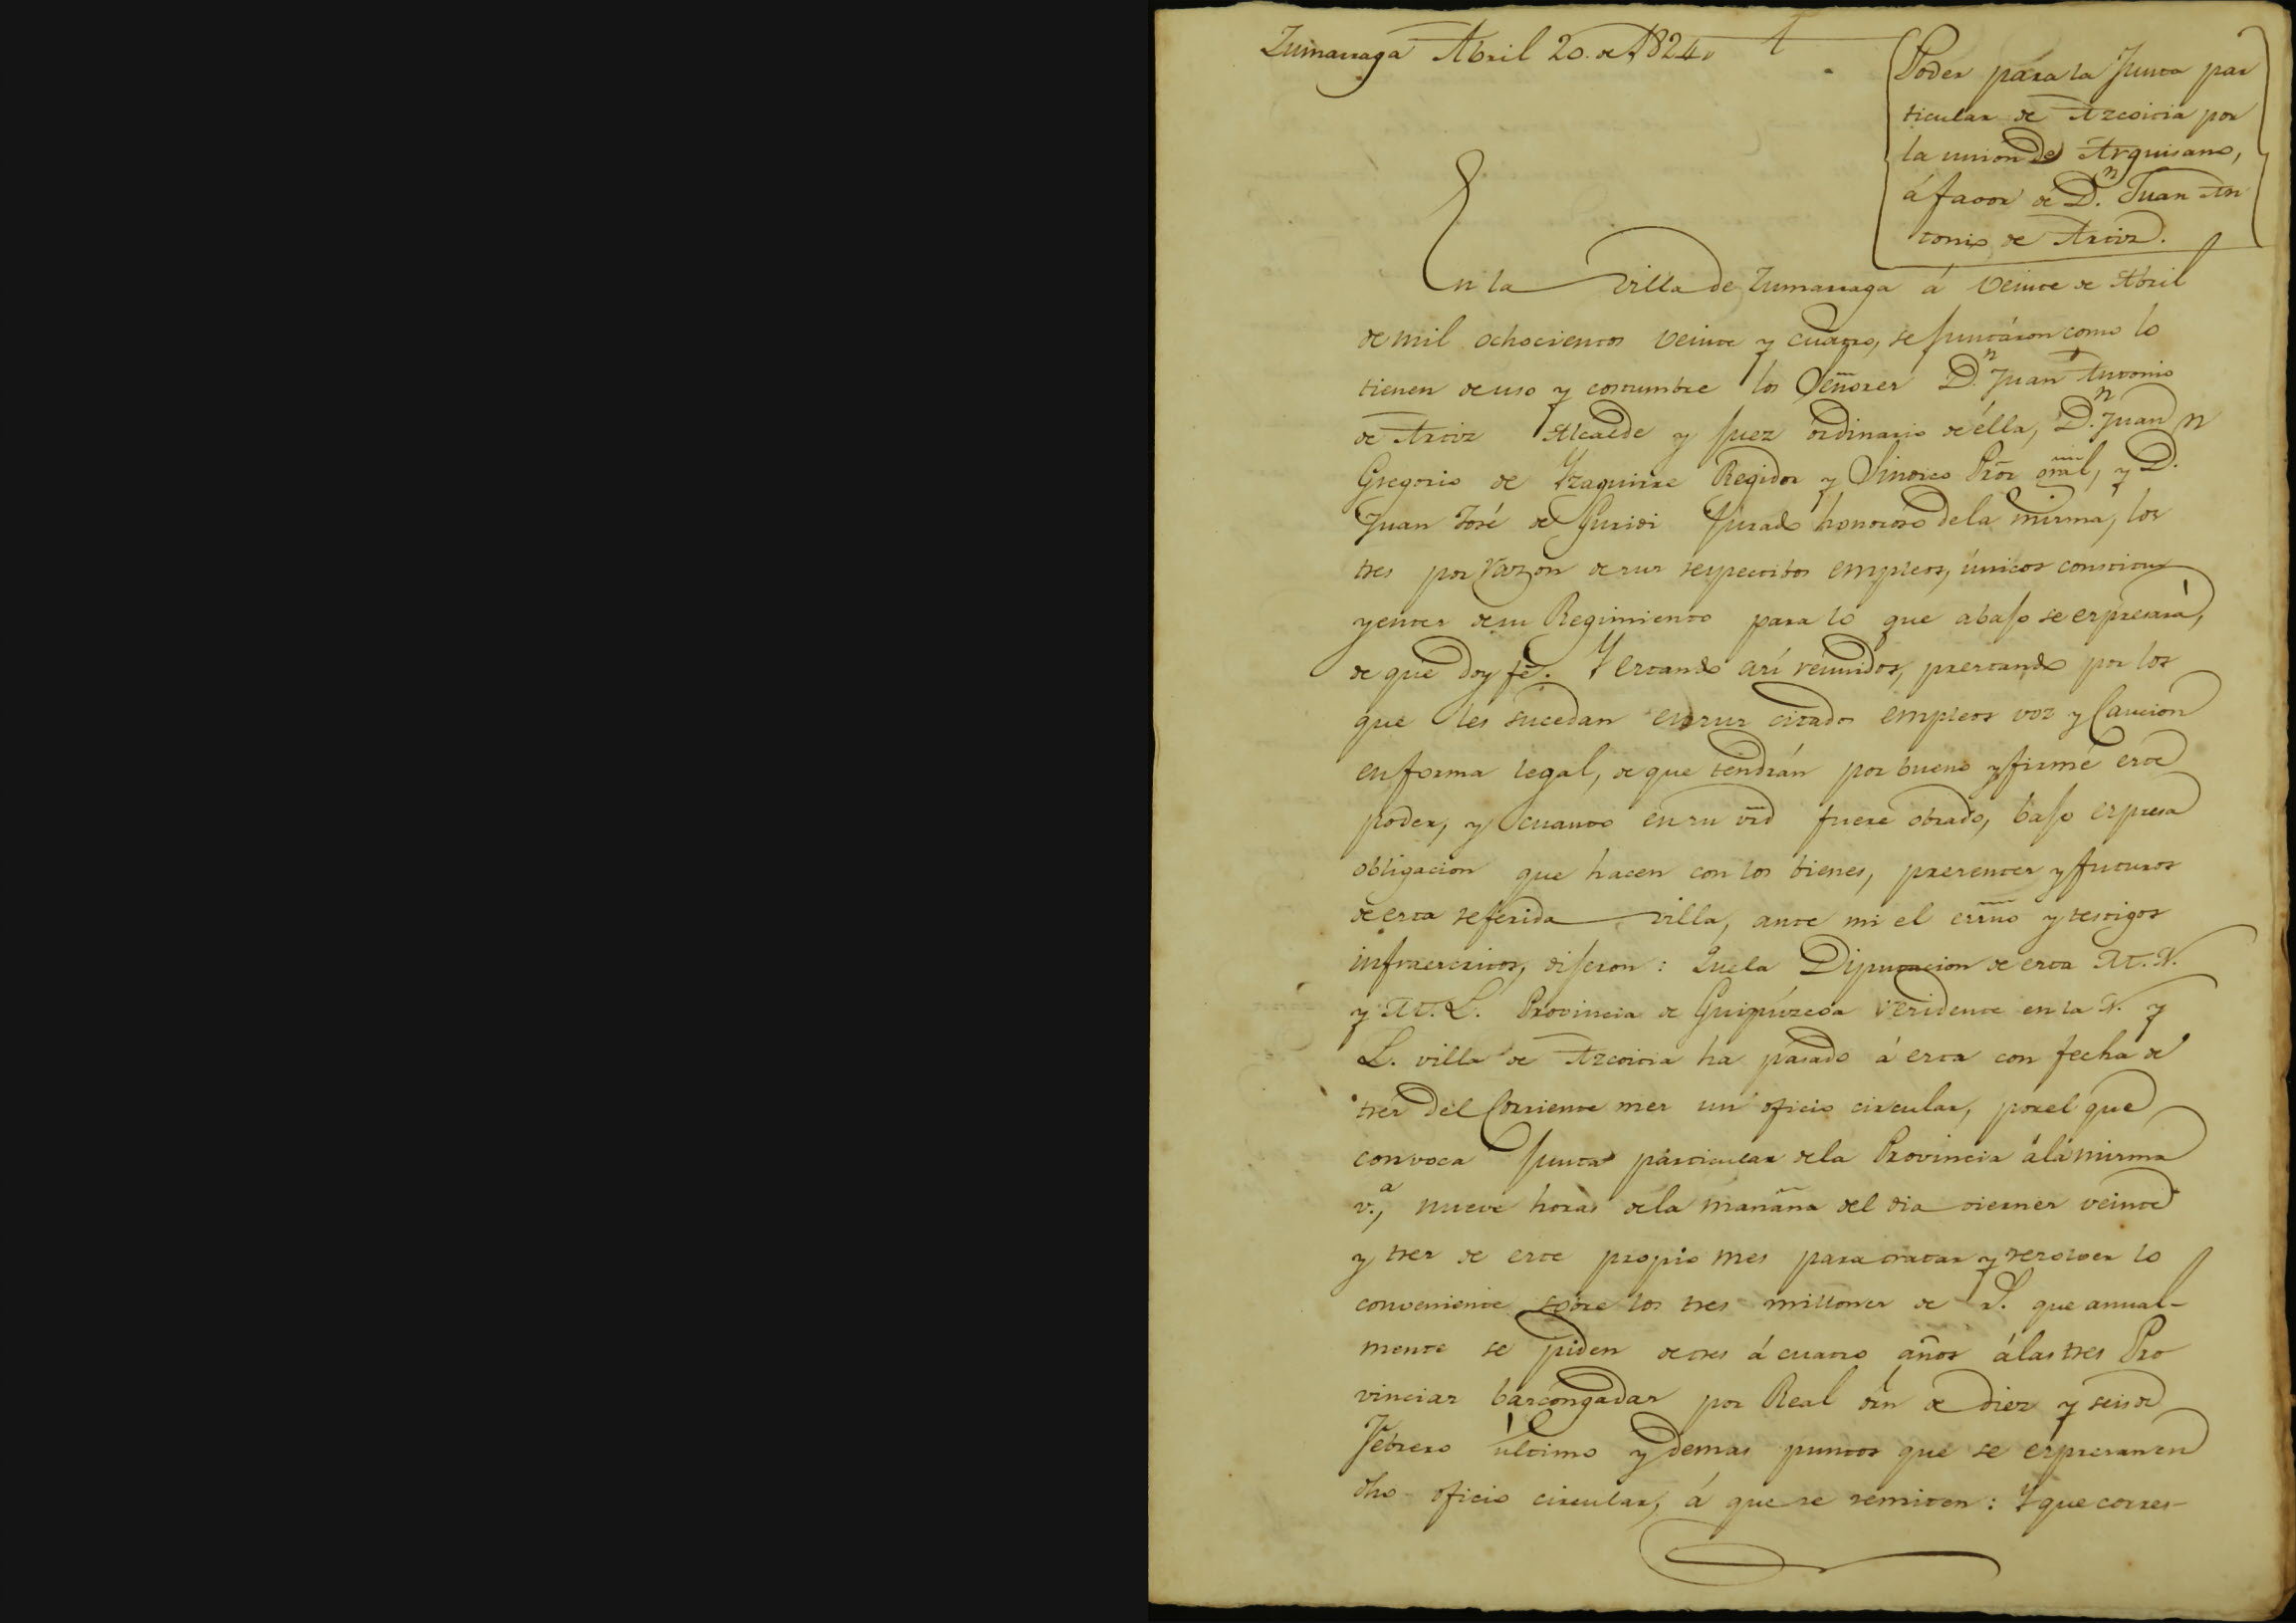 Zumarraga Abril 20. de 1824.
Poder para la Junta par
ticular de Azcoitia por
la union de Arguisano,
á favor de D.n Juan An
tonio de Artiz.
En la Villa de Zumarraga á Veinte de Abril
de mil ochocientos Veinte y cuatro, se juntáron como lo
tienen de uso y costumbre los Señores D.n Juan Antonio
de Artiz Alcalde y Juez ordinario de élla, D.n Juan
Gregorio de Yzaguirre Regidor y Sindico Prõr gral, y D.n
Juan José de Guridi Jurado honoroso de la misma, los
tres por razon de sus respectibos empleos, únicos constitu
yentes de su Regimiento para lo que abajo se espresará,
de que doy fé. Y estando así reunidos, prestando por los
que les sucedan en sus citados empleos voz y Caucion
en forma legal, de que tendrán por bueno y firme este
poder, y cuanto en su vrd fuere obrado, bajo espresa
obligacion que hacen con los bienes, presentes y futuros
de esta referida villa, ante mi el essno y testigos
infraescritos, dijeron: Que la Diputacion de esta M. N.
y M. L. Provincia de Guipúzcoa residente en la N. y
L. villa de Azcoitia ha pasado á esta con fecha de
tres del Corriente mes un oficio circular, por el que
convoca Junta particular de la Provincia á la misma
v.a, nueve horas de la mañana del dia viernes veinte
y tres de este propio mes para tratar y resolver lo
conveniente sobre los tres millones de r.s que anual-
mente se piden de tres á cuatro años á las tres Pro
vincias bascongadas por Real orñ de diez y seis de
Febrero último y demas puntos que se espresan en
dho oficio circular, á que se remiten: Y que corres-